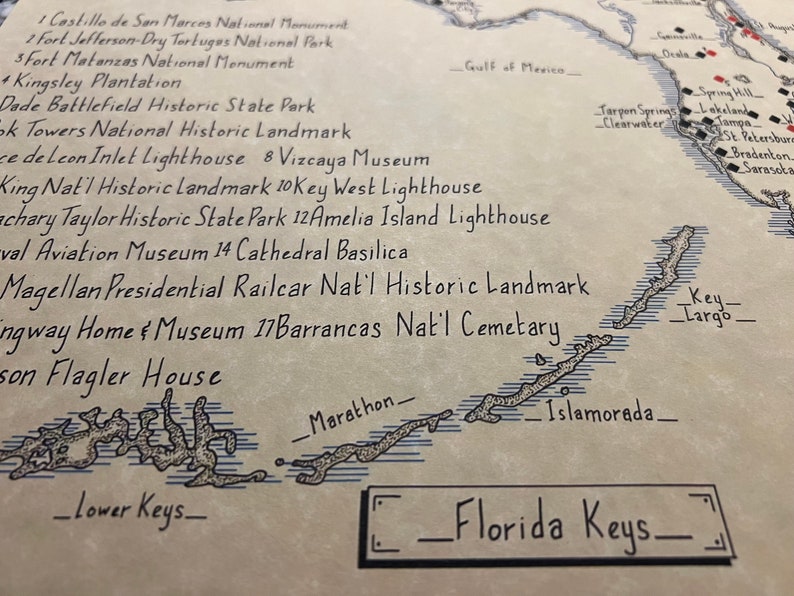 1 Castillo de San Marcos National Monument
2 Fort Jefferson-Dry Tortugas National Park
3 Fort Matanzas National Monument
4 Kingsley Plantation
Dade Battlefield Historic State Park
ok Towers National Historic Landmark
ce de Leon Inlet Lighthouse 8 Vizcaya Museum
King Nat'l Historic Landmark 10 Key West Lighthouse
achary Taylor Historic State Park 12 Amelia Island Lighthouse
val Aviation Museum 14 Cathedral Basilica
Magellan Presidential Railcar Nat'l Historic Landmark
ngway Home & Museum 17 Barrancas Nat'l Cemetary
son Flagler House
Gulf of Mexico
Gainsville
Ocala
St August
Spring Hill
Tarpon Springs
Lakeland
Clearwater
Tampa
St. Petersburg
Bradenton
Sarasota
Key
Largo
Islamorada
Marathon
Lower Keys
Florida Keys